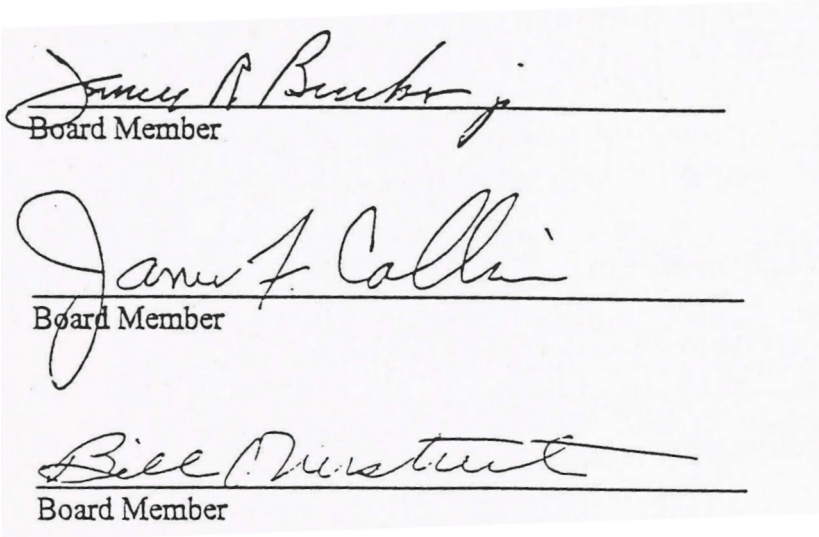 James R
Board Member
James F. Collin
Board Member
Bill
Board Member